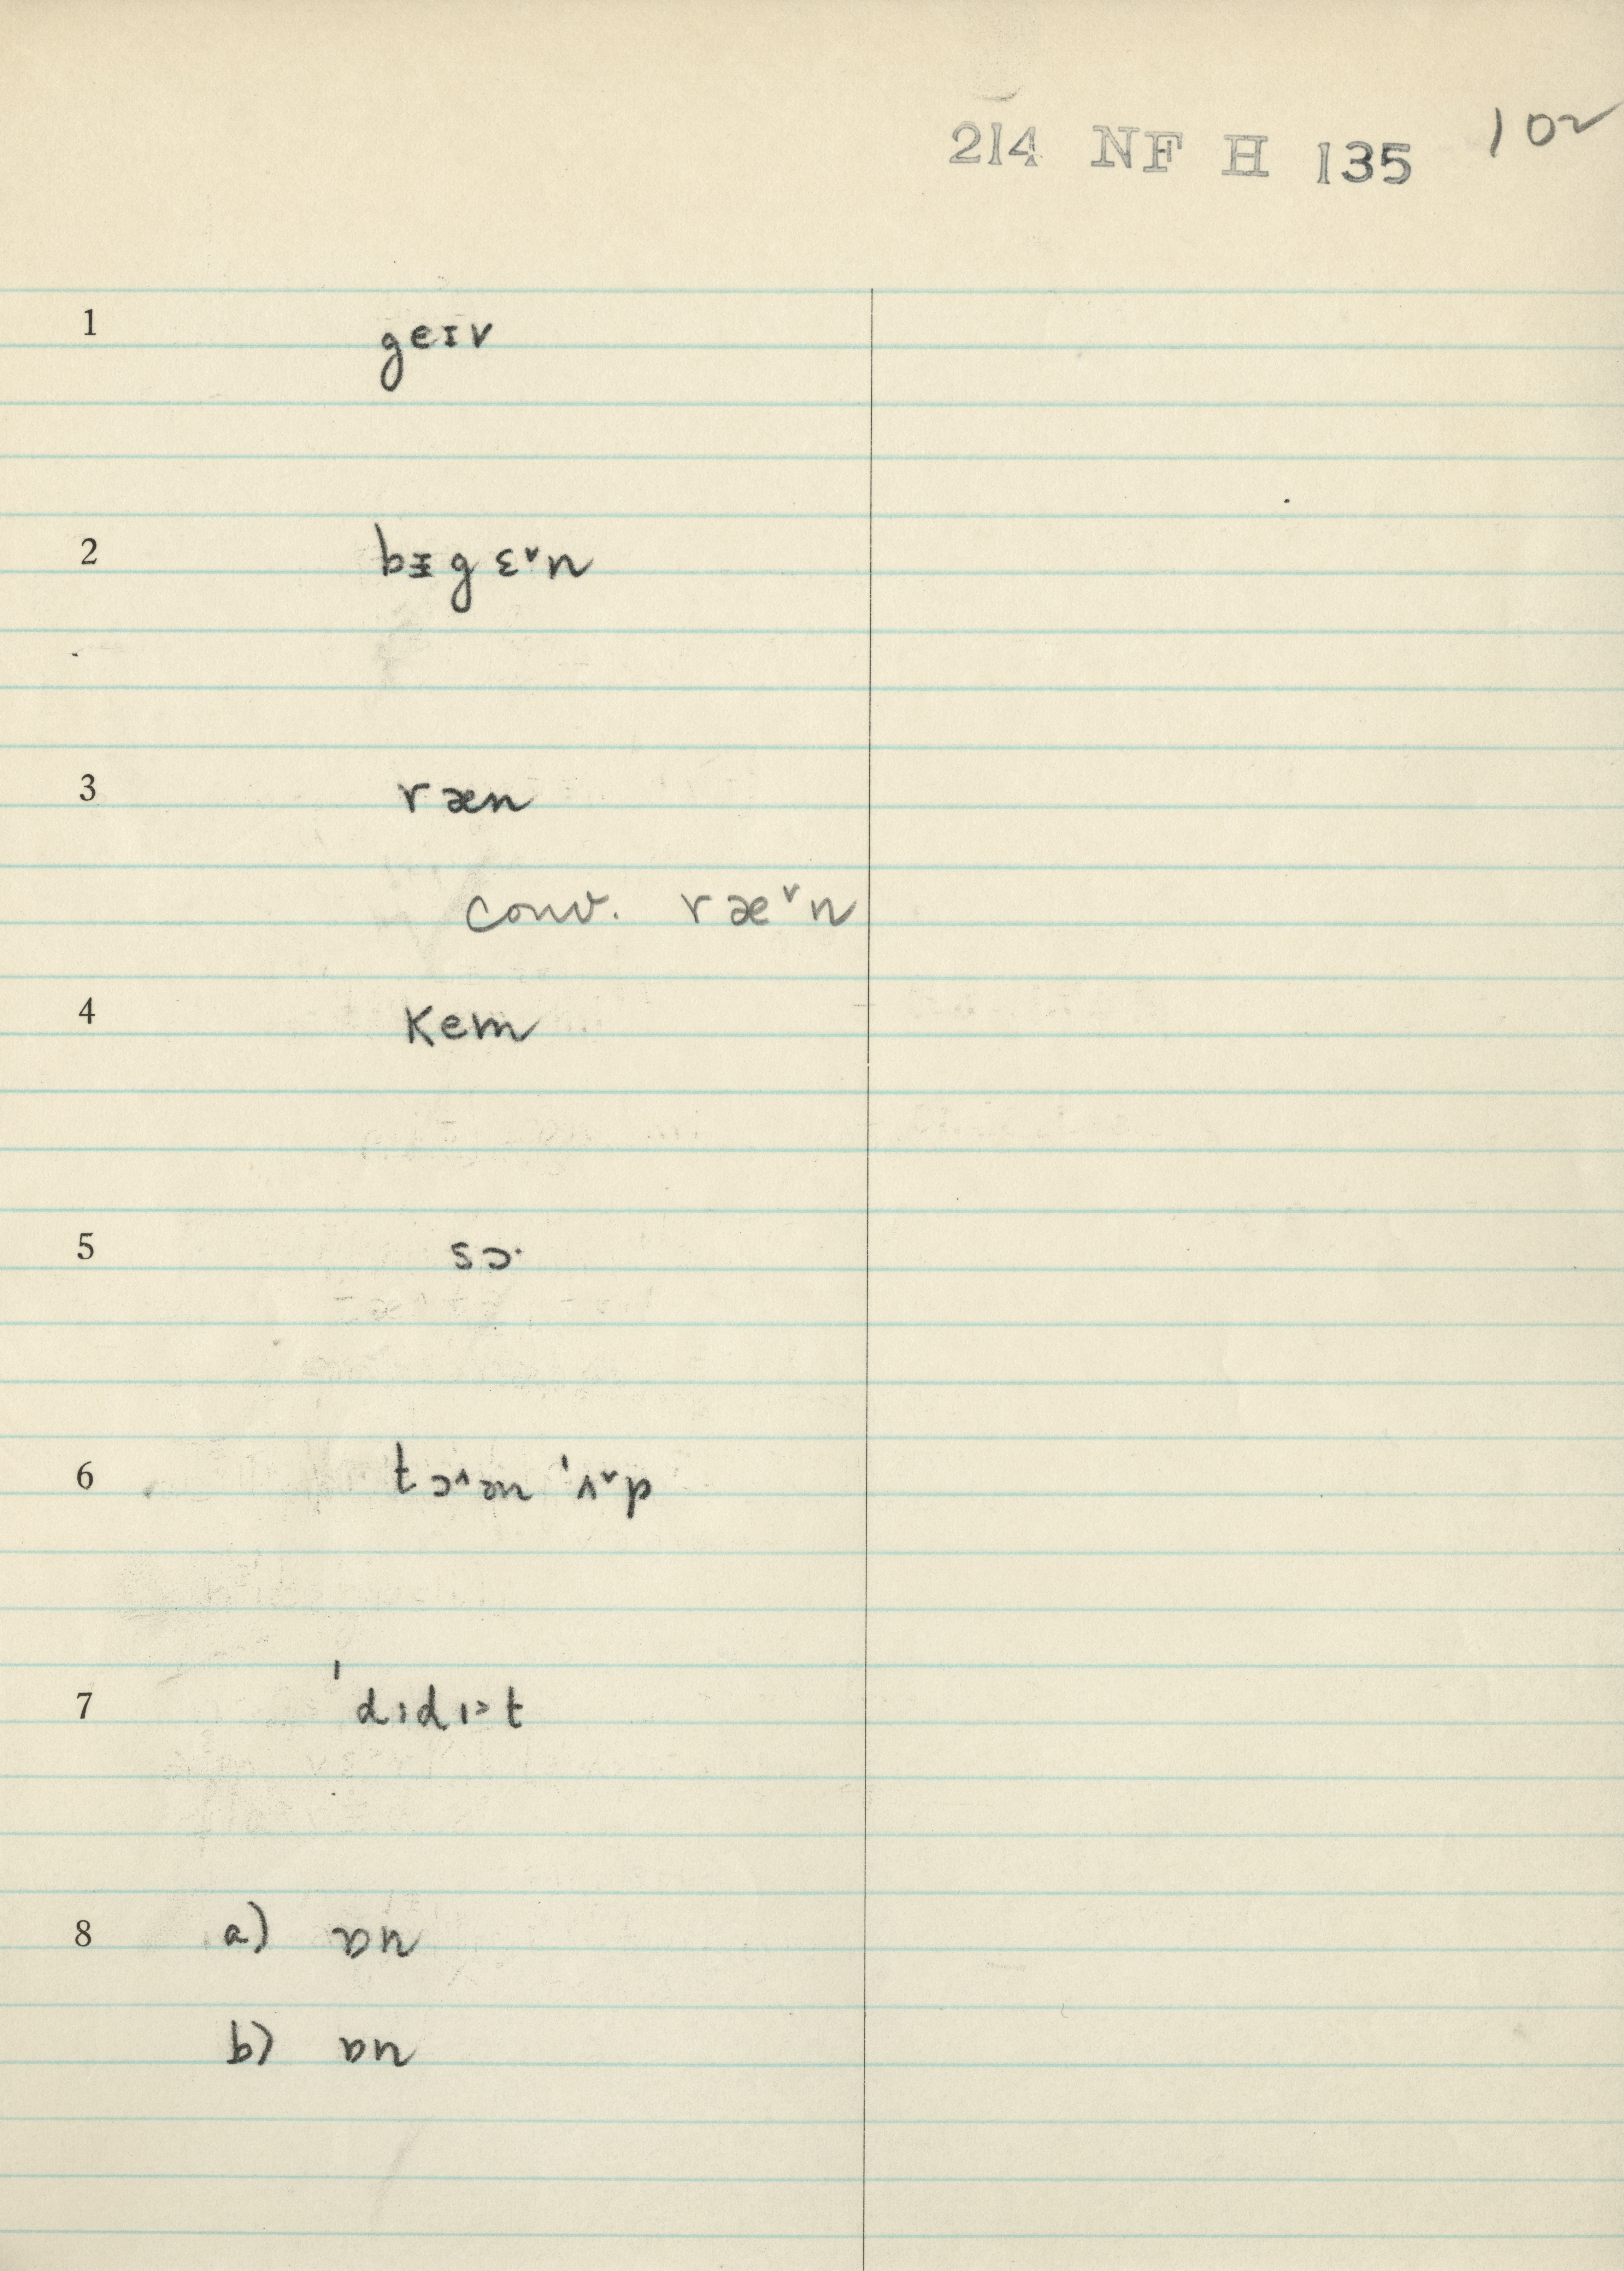 214 NF H 135 102
1 geɪv
2 bᵻgɛ˅n
3 ræn
conv. ræ˅n
4 kem
5 sɔ·
6 tɔ˄ən ˈʌ˅p
7 ˈdɪdɪ˃t
8 a) ɒn
b) ɒn